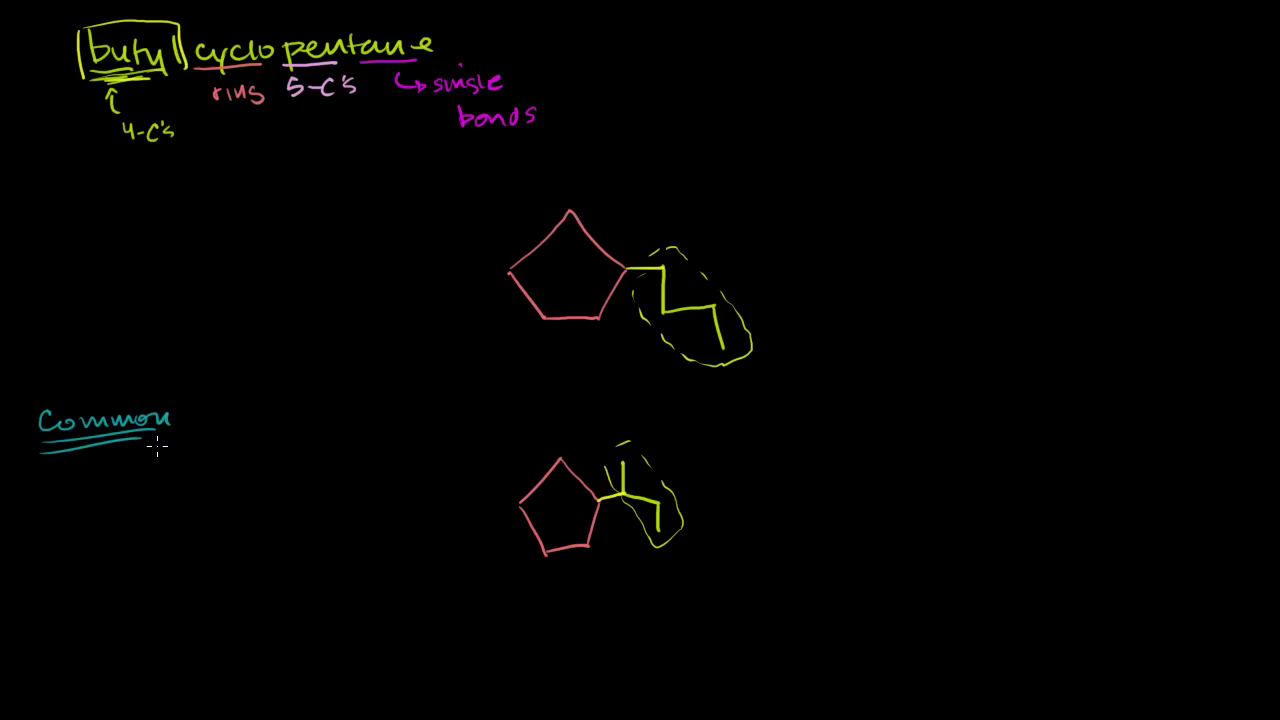 butyl cyclopentane
ring 5-C's single
bonds
4-C's
Common